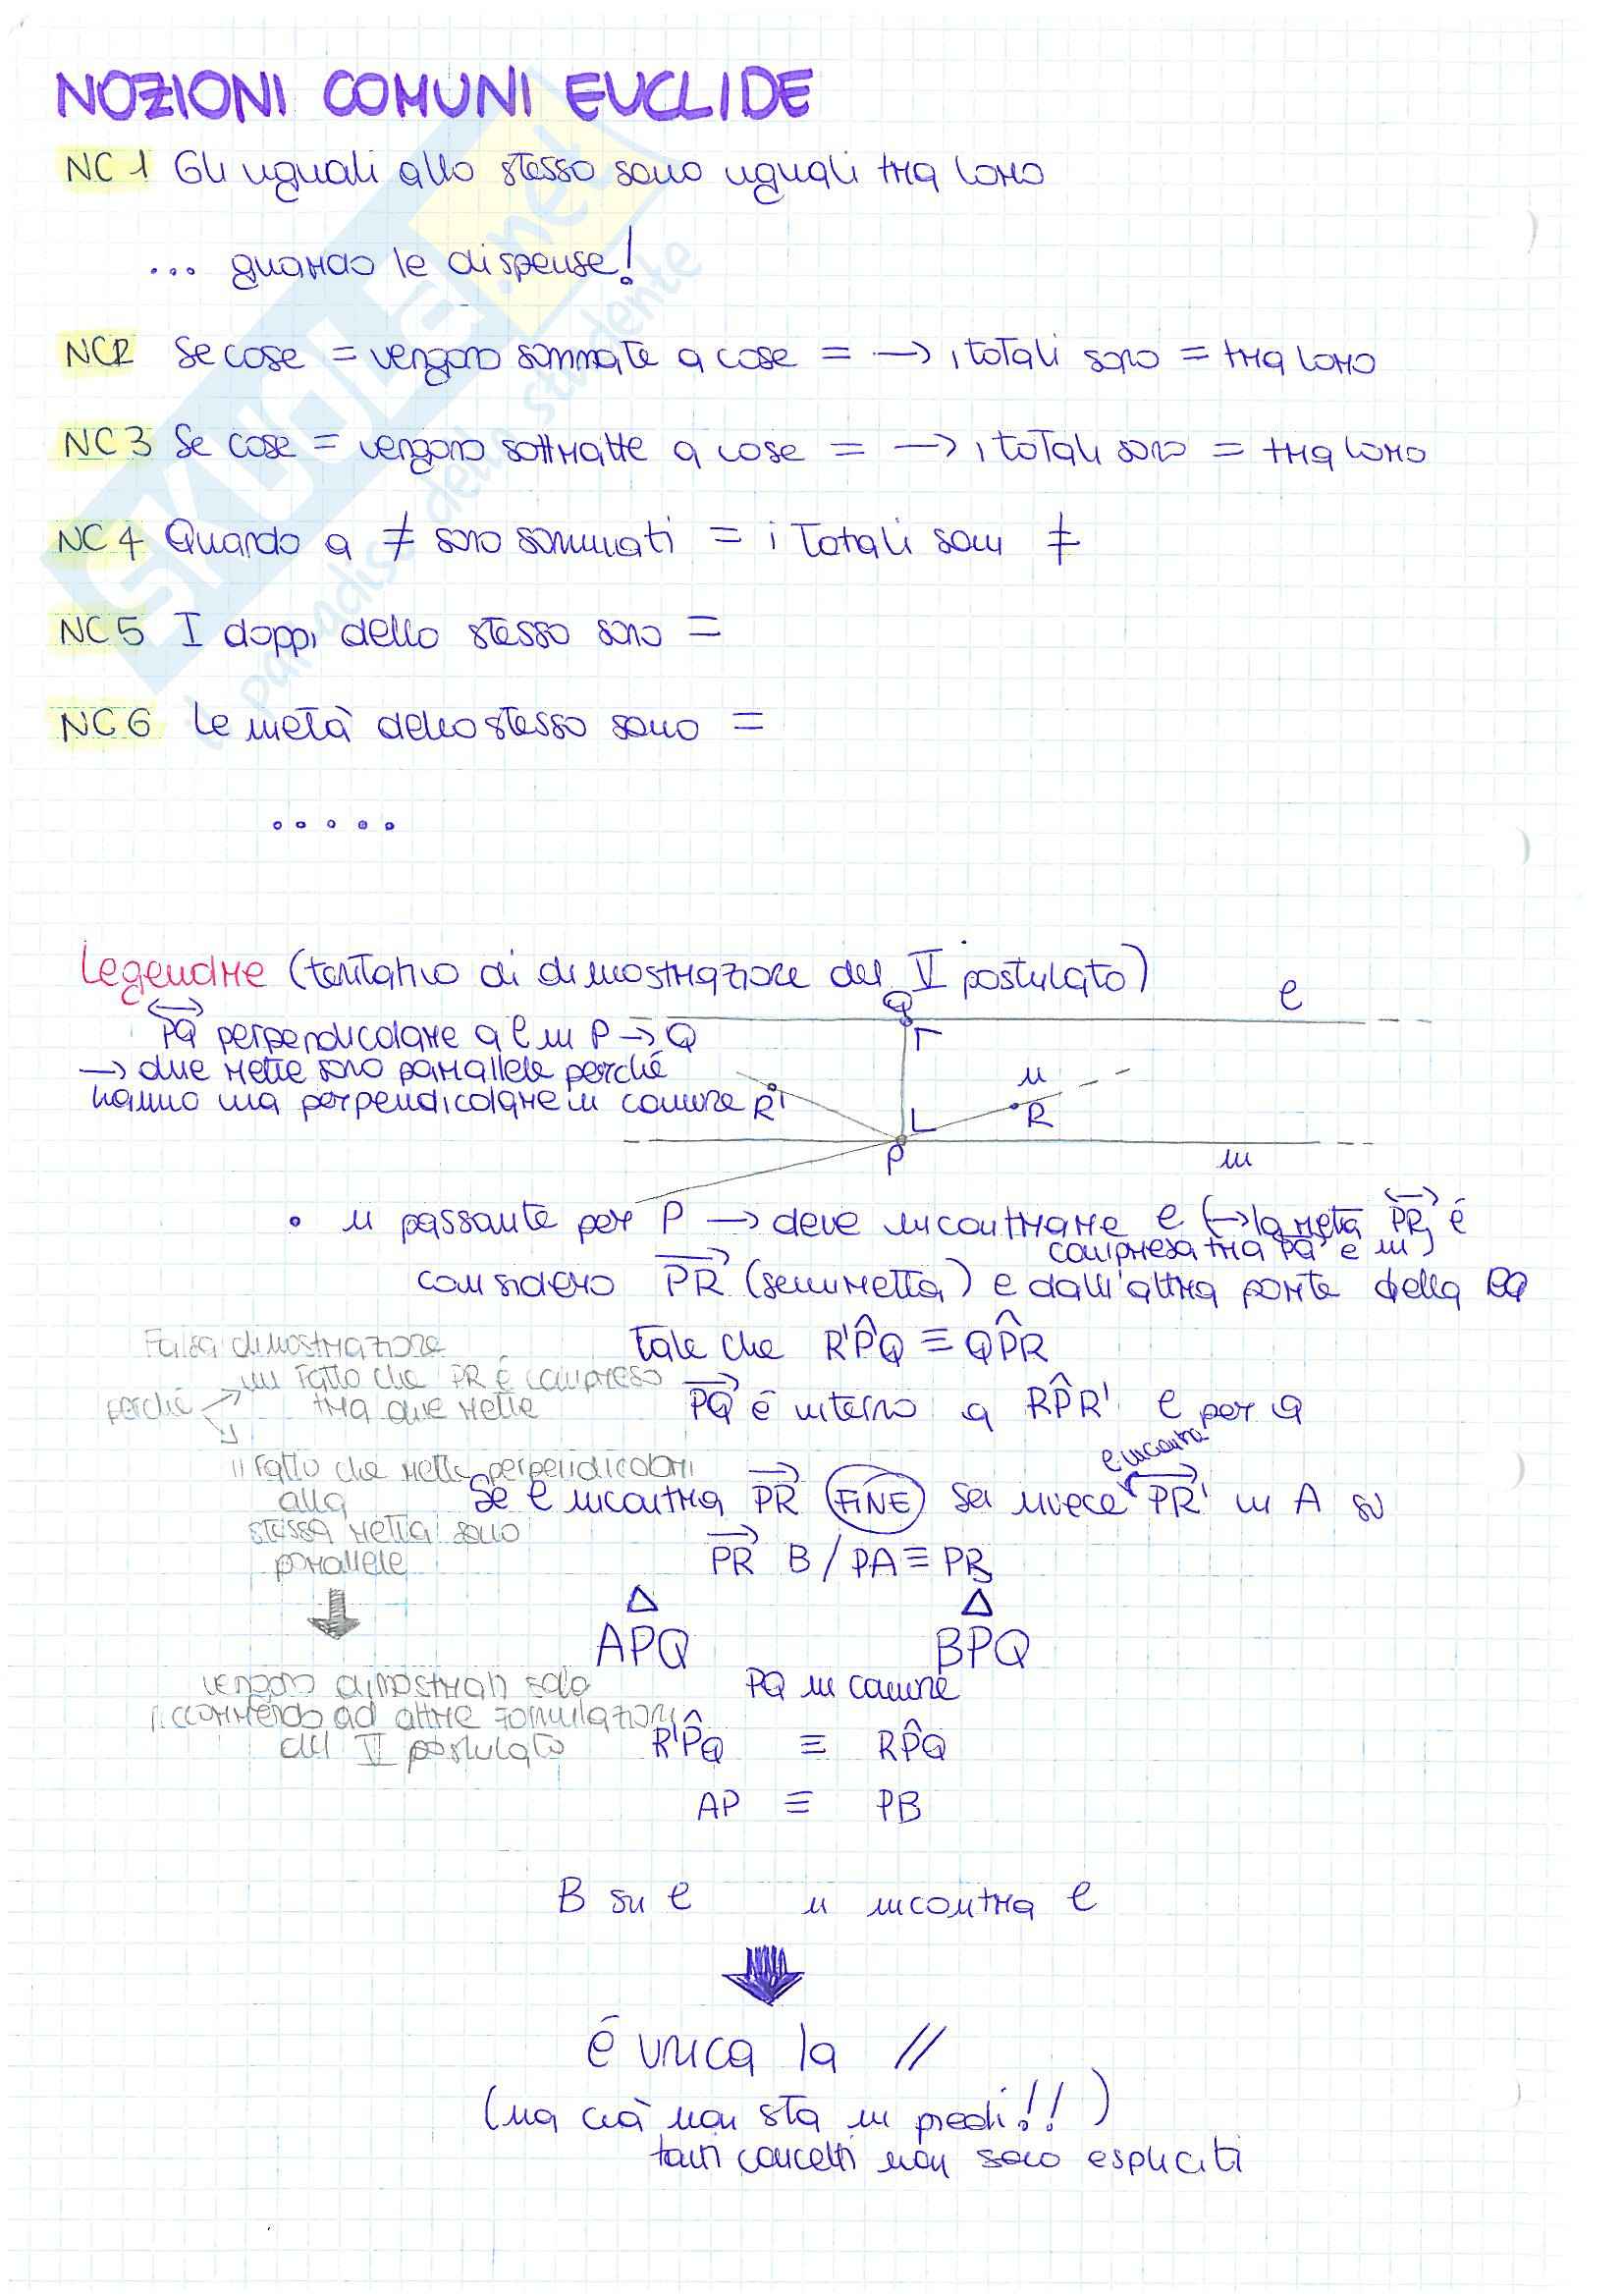 NOZIONI COMUNI EUCLIDE
NC 1 Gli uguali allo stesso sono uguali tra loro
... guardo le dispense!
NC2 Se cose = vengono sommate a cose = → i totali sono = tra loro
NC 3 Se cose = vengono sottratte a cose = → i totali sono = tra loro
NC 4 Quando a ≠ sono sommati = i totali sono ≠
NC 5 I doppi dello stesso sono =
NC 6 Le metà dello stesso sono =
.....
Legendre (tentativo di dimostrazione del V postulato)
Q
l
PQ perpendicolare a l in P → Q
→ due rette sono parallele perché
n
hanno una perpendicolare in comune
R'
R
P
m
• n passante per P → deve incontrare l (→ la retta PR è
compresa tra PQ e m)
considero PR (semiretta) e dall'altra parte della PQ
Falsa dimostrazione
tale che R'P̂Q ≡ QP̂R
un fatto che PR è compreso
perché
tra due rette
PQ è interno a RP̂R' l per Q
il fatto che rette perpendicolari
l incontra
alla
Se l incontra PR (FINE) Se invece PR' in A su
stessa retta sono
parallele
PR B / PA ≡ PB
△ △
APQ BPQ
vengono dimostrati solo
PQ in comune
ricorrendo ad altre formulazioni
del V postulato
R'P̂Q ≡ RP̂Q
AP ≡ PB
B su l n incontra l
è unica la //
(ma ciò non sta in piedi!!)
tanti concetti non sono espliciti
SKUOLA.net
il paradiso dello studente